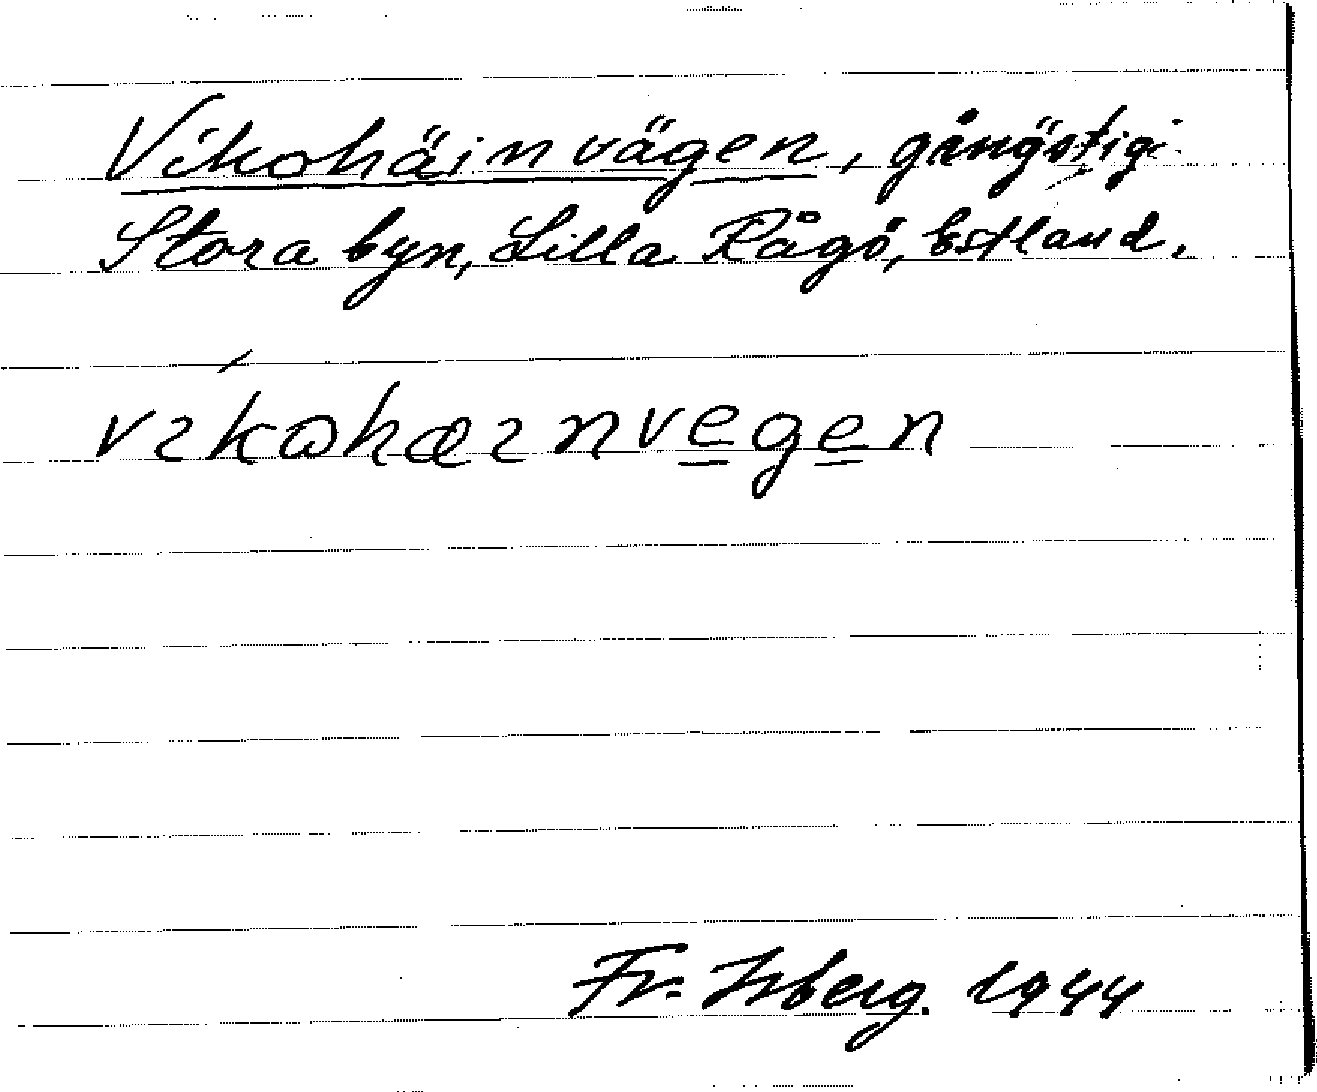 Vikohäinvägen, gångstig
Stora byn, Lilla Rågö, Estland.
vikohæinvegen
Fr. Isberg. 1944